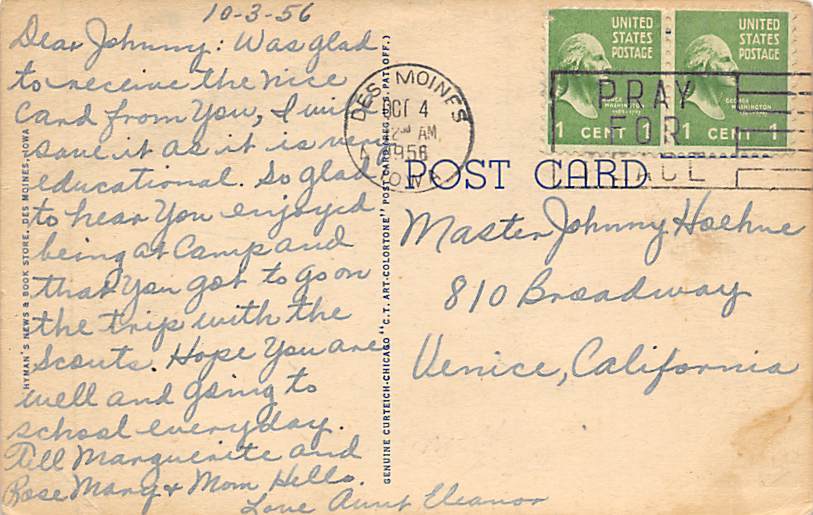 10-3-56
Dear Johnny: Was glad
to receive the nice
card from You, I will
save it as it is very
educational. So glad
to hear You enjoyed
being at Camp and
that You got to go on
the trip with the
Scouts. Hope You are
well and going to
school everyday.
Tell Marguerite and
Rose Mary & Mom Hello.
Love Aunt Eleanor
HYMAN'S NEWS & BOOK STORE, DES MOINES, IOWA
GENUINE CURTEICH-CHICAGO "C.T. ART-COLORTONE" POST CARD (REG. U.S. PAT. OFF.)
DES MOINES
OCT 4
AM
1956
IOWA
UNITED
STATES
POSTAGE
GEORGE
WASHINGTON
1 CENT 1
UNITED
STATES
POSTAGE
GEORGE
WASHINGTON
1 CENT 1
PRAY
FOR
PEACE
POST CARD
Master Johnny Hoehne
810 Broadway
Venice, California